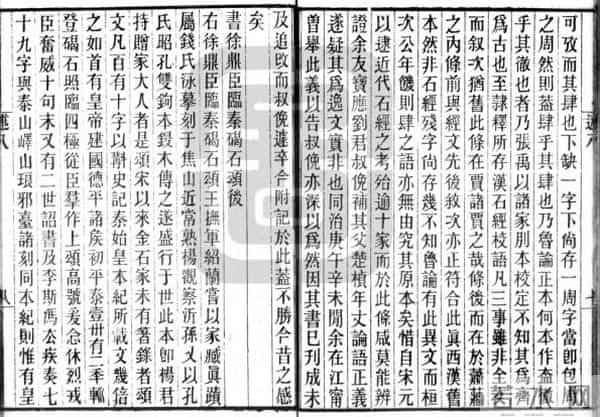 可攷而其肆也下缺一字下尚存一周字當卽包周
之周然則蓋肆乎其肆也乃魯論正本何本作蓋
乎其徹也者乃張禹以諸家別本校定不知其爲齊
爲古也至隸釋所存漢石經校語凡三事雖非全文
而叙次猶舊此條在賈諸賈之哉條後而在於蕭牆
之內條前與經文先後敘次亦正符合此眞西漢舊
本然非石經殘字尚存幾不知魯論有此異文而桓
次公年饑則肆之語亦無由究其原本矣惜自宋元
以逮近代石經之考殆逾十家而於此條咸莫能辨
證余友寶應劉君叔俛補其父楚楨年丈論語正義
遂疑其爲逸文實非也同治庚午辛未閒余在江甯
曾舉此義以告叔俛亦深以爲然因其書已刊成未
及追改而叔俛遽卒今附記於此蓋不勝今昔之感
矣
書徐鼎臣臨秦碣石頌後
右徐鼎臣臨秦碣石頌王撫軍紹蘭嘗以家臧眞蹟
屬錢氏泳摹刻于焦山近常熟楊觀察沂孫又以孔
氏昭孔雙鉤本鋟木傳之遂盛行于世此本卽楊君
持贈家大人者是頌宋以來金石家未有箸錄者頌
文凡百有十字以斠史記秦始皇本紀所載文幾倍
之如首有皇帝建國德平諸矦初平泰壹卅有二年
登碣石照臨四極從臣羣作上頌高號爰念休烈戎
臣奮威十句末又有二世詔書及李斯馮去疾奏七
十九字與泰山嶧山琅邪臺諸刻同本紀則惟有皇